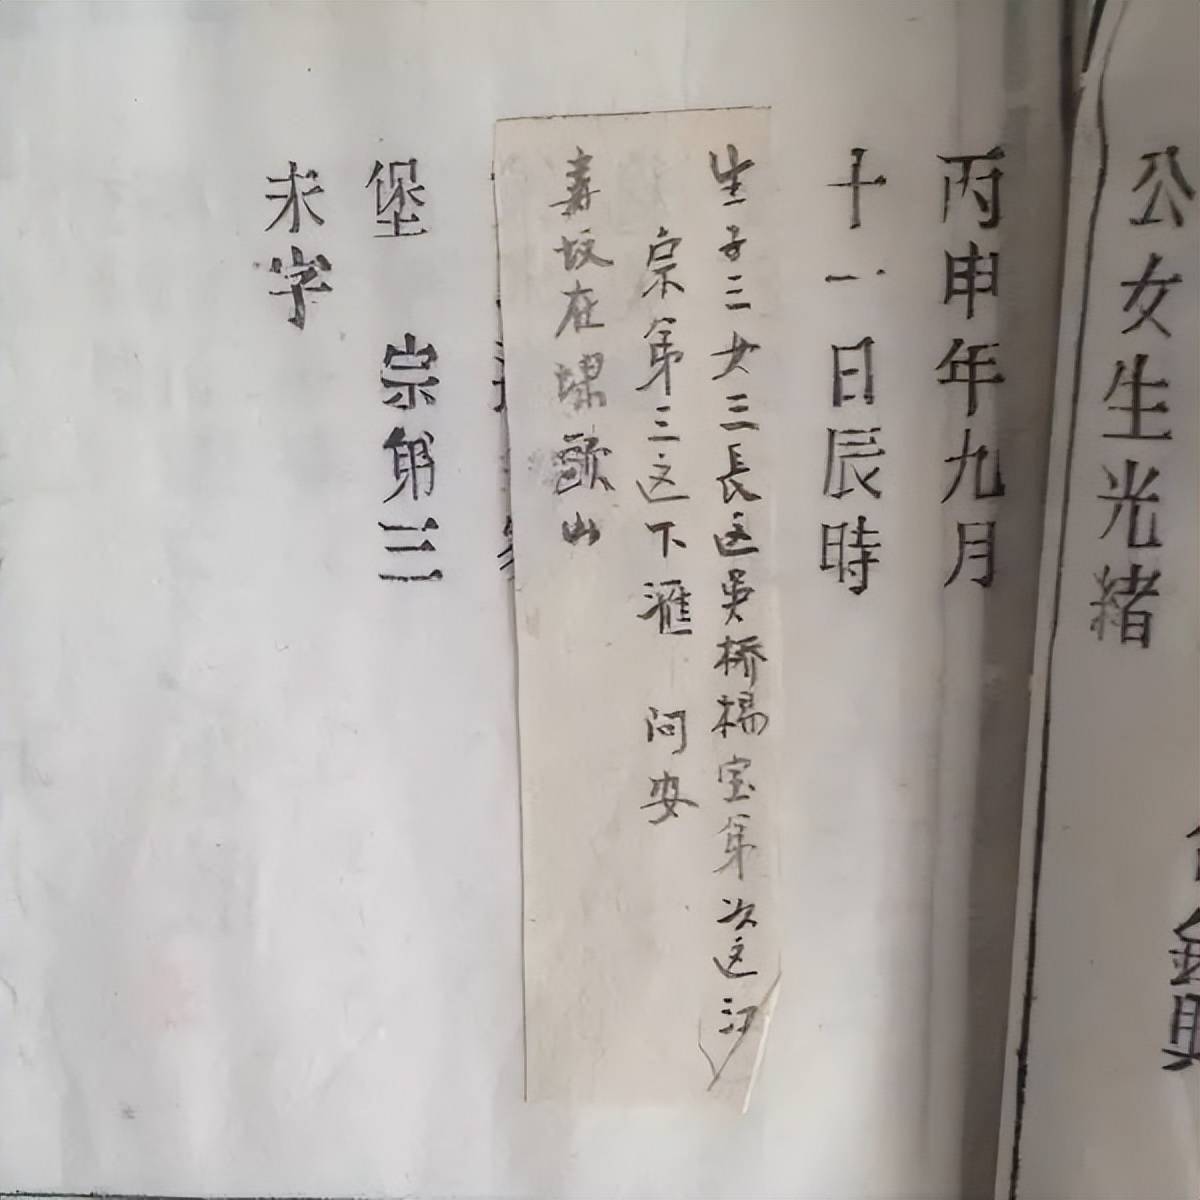 公女生光緒
丙申年九月
十一日辰時
生子三女三長这吳桥楊宝第次这江
宗第三这下滙 问安
寿坟在山
堡 宗第三
未字